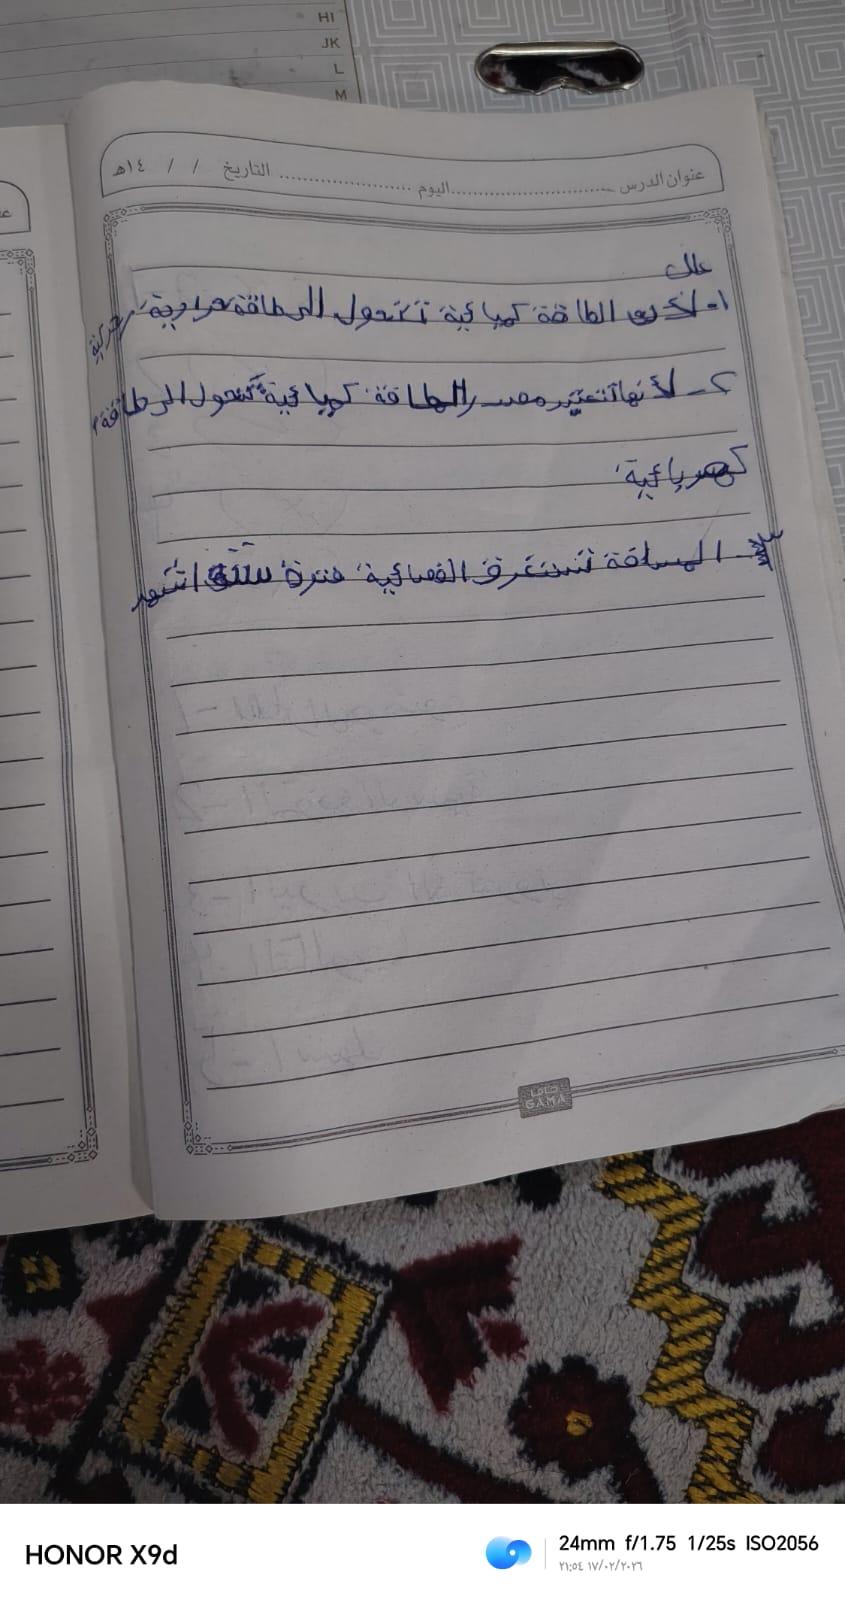 HI
JK
L
M
عنوان الدرس ........................ اليوم ........................ التاريخ / / ١٤هـ
علل
١- لأن الطاقة كميائية تتحول الى طاقة حرارية، حركية
٢- لأنها تعتبر مصدر الطاقة كهيائية تتحول الى طاقة
كهربائية
٣- المسافة تستغرق الفضائية فترة ستة اشهر
جاما
GAMA
HONOR X9d
24mm f/1.75 1/25s ISO2056
٢١:٥٤ ١٧/٠٢/٢٠٢٦